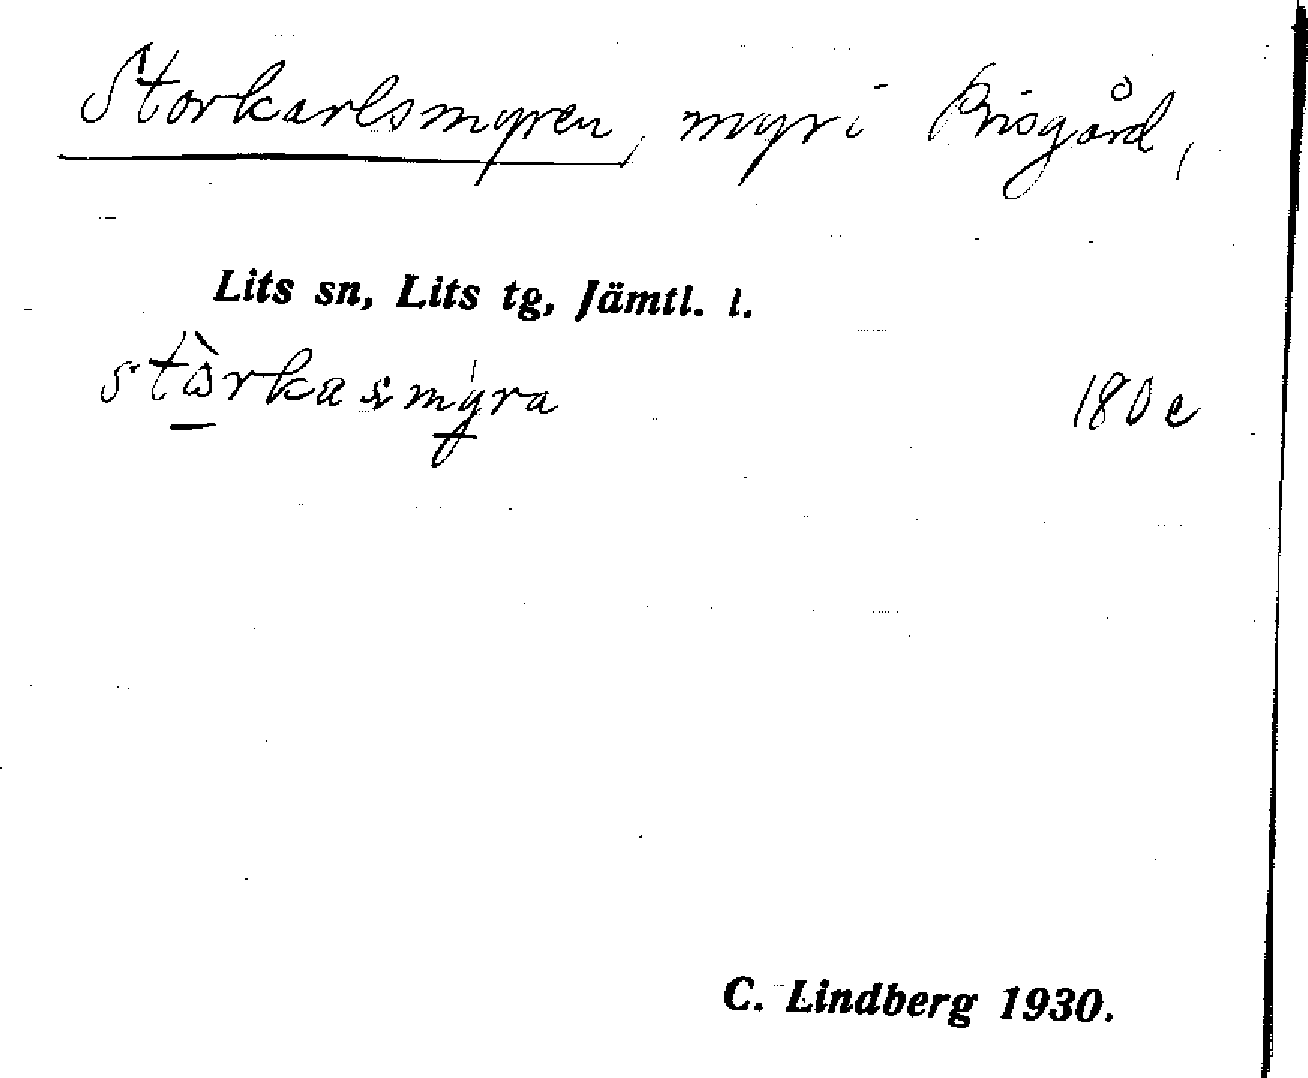 Storkarlsmyren, myr i Krisgård,
Lits sn, Lits tg, Jämtl. l.
180 e
C. Lindberg 1930.